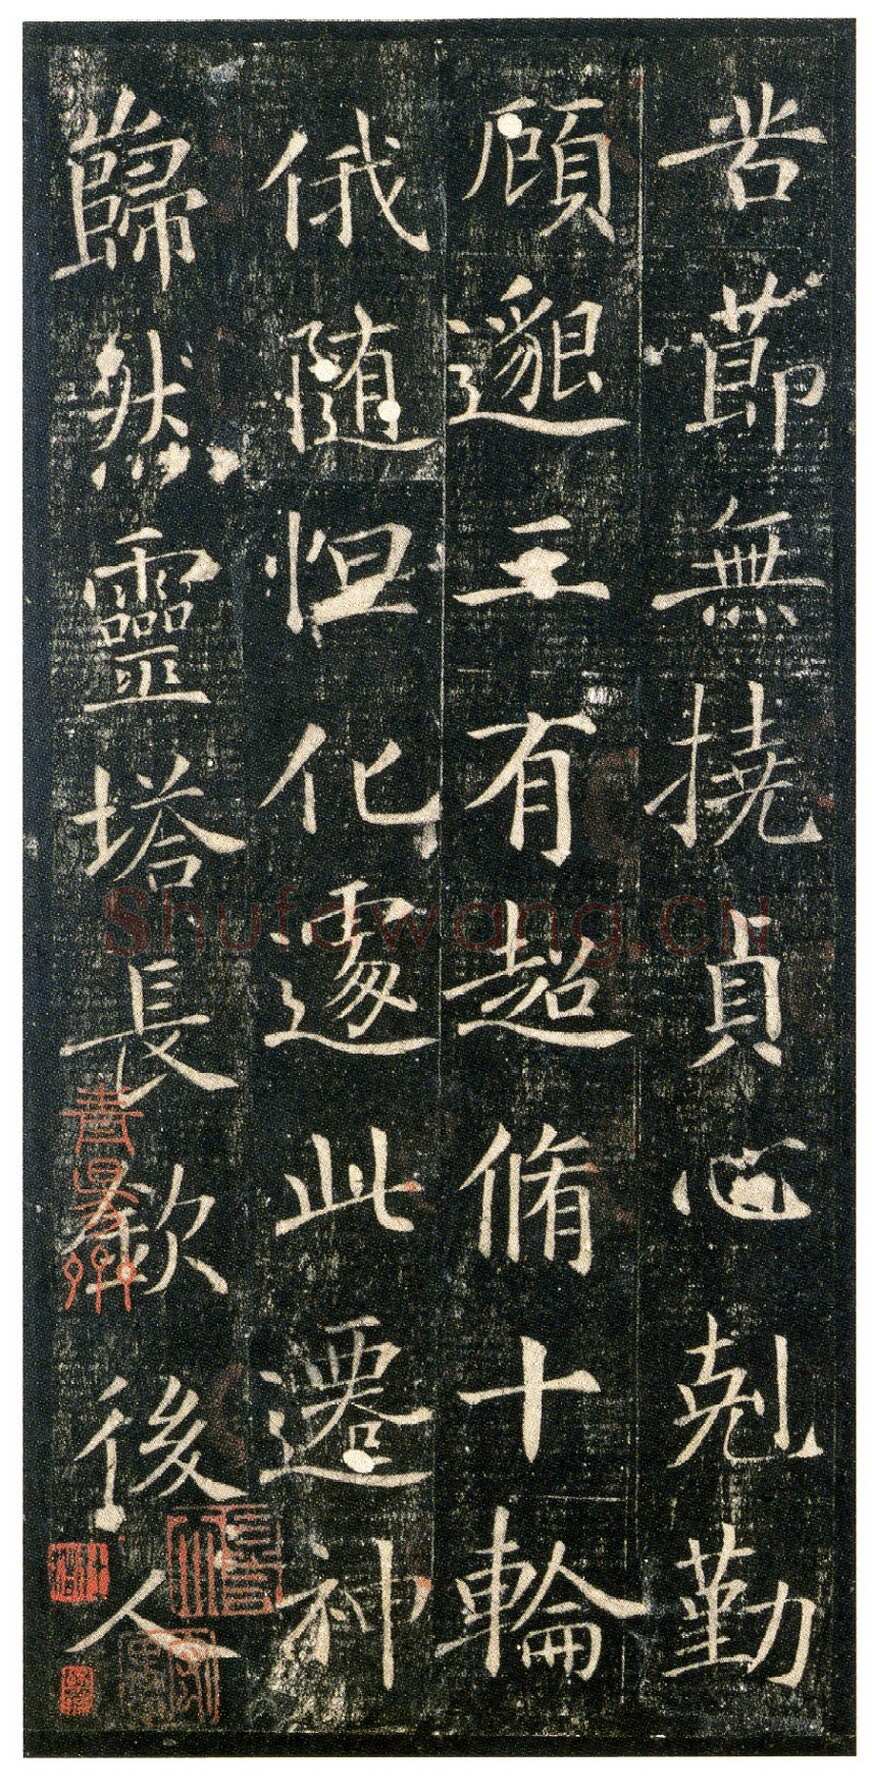 苦莭無撓貞心剋勤
頋邈三有超脩十輪
俄随怛化遽此遷神
巋然靈塔長欽後人
shufawang.cn